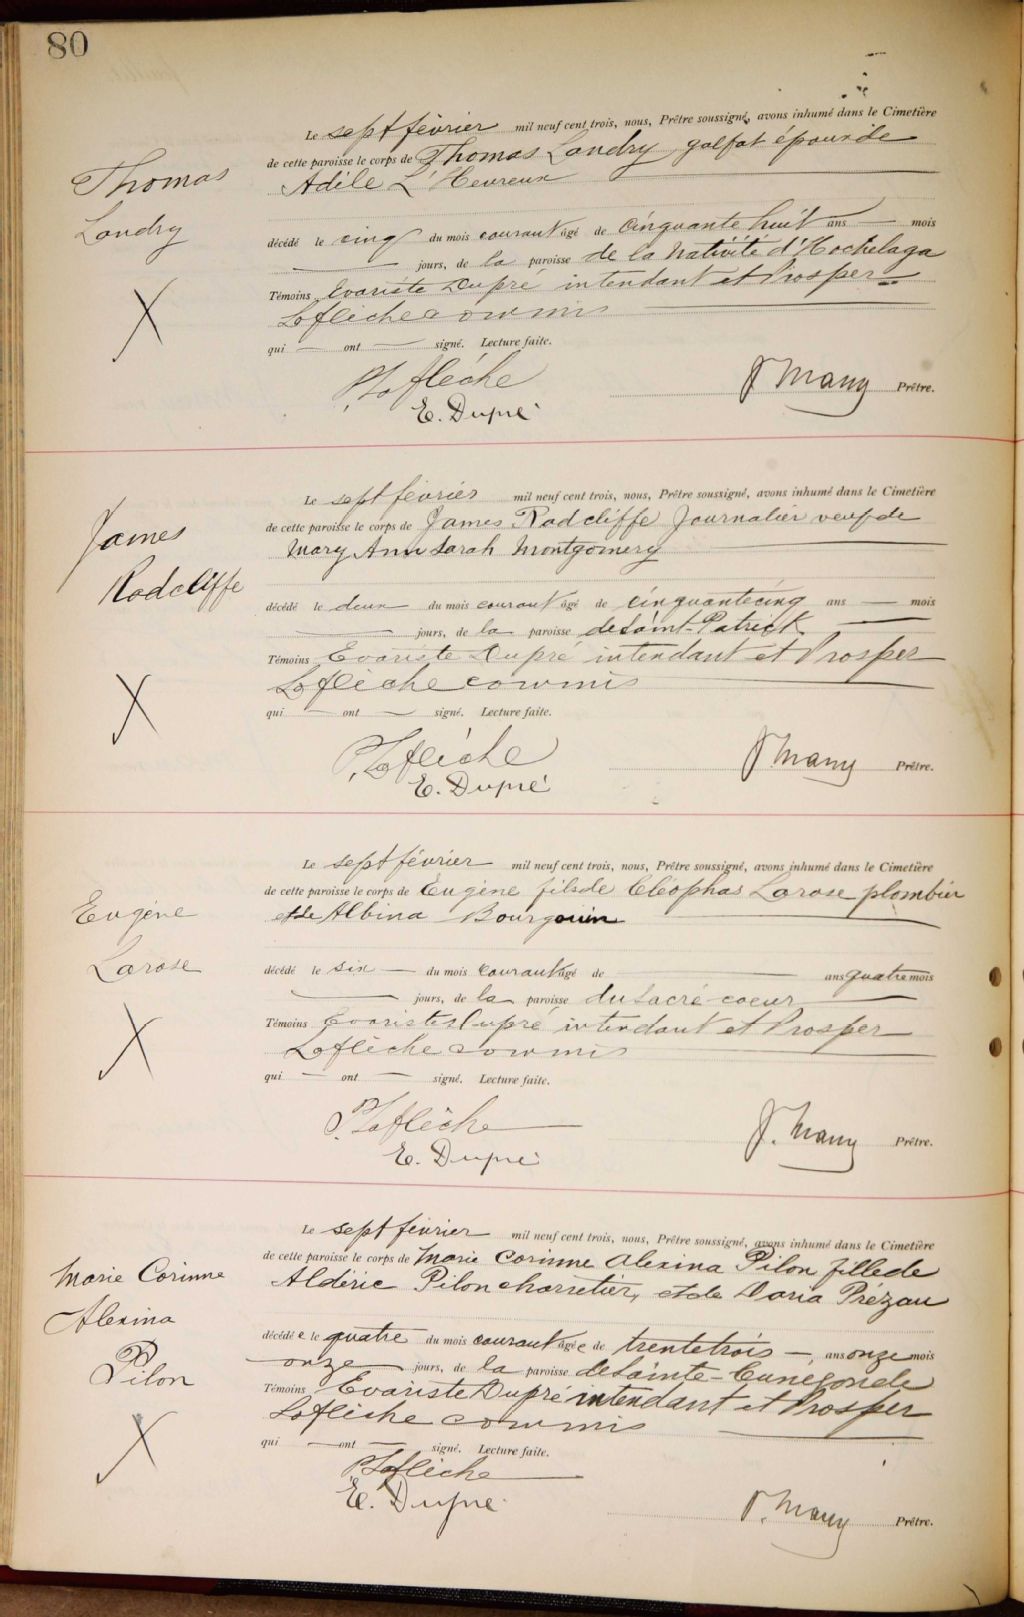 80
Le sept février mil neuf cent trois, nous, Prêtre soussigné, avons inhumé dans le Cimetière
de cette paroisse le corps de Thomas Landry galfat époux de
Adèle L'Heureux
Thomas
Landry
X
décédé le cinq du mois courant âgé de cinquante huit ans — mois
— jours, de la paroisse de la Nativité d'Hochelaga
Témoins Evariste Dupré intendant et Prosper
Laflèche commis
qui — ont — signé. Lecture faite.
P. Laflèche
J Many Prêtre.
E. Dupré
Le sept février mil neuf cent trois, nous, Prêtre soussigné, avons inhumé dans le Cimetière
de cette paroisse le corps de James Radcliffe Journalier veuf de
Mary Ann Sarah Montgomery
James
Radcliffe
X
décédé le deux du mois courant âgé de cinquante cinq ans — mois
— jours, de la paroisse de Saint-Patrick
Témoins Evariste Dupré intendant et Prosper
Laflèche commis
qui — ont — signé. Lecture faite.
P. Laflèche
J Many Prêtre.
E. Dupré
Le sept février mil neuf cent trois, nous, Prêtre soussigné, avons inhumé dans le Cimetière
de cette paroisse le corps de Eugène fils de Cléophas Larose plombier
et de Albina Bourgouin
Eugène
Larose
X
décédé le six — du mois courant âgé de — ans quatre mois
— jours, de la paroisse du Sacré-coeur
Témoins Evariste Dupré intendant et Prosper
Laflèche commis
qui — ont — signé. Lecture faite.
P. Laflèche
J. Many Prêtre.
E. Dupré
Le sept février mil neuf cent trois, nous, Prêtre soussigné, avons inhumé dans le Cimetière
de cette paroisse le corps de Marie Corinne Alexina Pilon fille de
Aldéric Pilon charretier, et de Daria Prézau
Marie Corinne
Alexina
Pilon
X
décédée le quatre du mois courant âgée de trente trois — ans onze mois
onze jours, de la paroisse de Sainte-Cunegonde
Témoins Evariste Dupré intendant et Prosper
Laflèche commis
qui — ont — signé. Lecture faite.
P. Laflèche
E. Dupré
J. Many Prêtre.